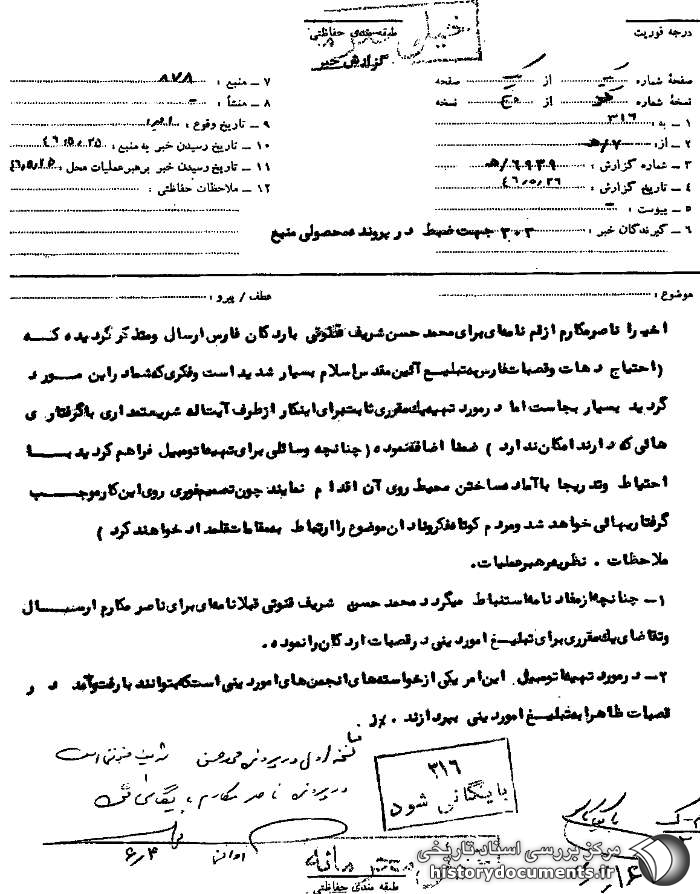 درجه فوریت
طبقه بندی حفاظتی
خیلی
گزارش خبر
صفحهٔ شماره از صفحه
نسخهٔ شماره از نسخه
۱ ــ به : ۳۱۶
۲ ــ از : ۷/ه‍
۳ ــ شماره گزارش : ۶۹۳۹/ه‍
۴ ــ تاریخ گزارش : ۴۶٫۵٫۲۶
۵ ــ پیوست : ــ
۶ ــ گیرندگان خبر : ۳۰۲ جهت ضبط در پرونده محصولی منبع
۷ ــ منبع : ۸۷۸
۸ ــ منشأ : ــ
۹ ــ تاریخ وقوع : اخیرا
۱۰ ــ تاریخ رسیدن خبر به منبع : ۴۶٫۵٫۲۵
۱۱ ــ تاریخ رسیدن خبر برهبر عملیات محل : ۴۶٫۵٫۲۵
۱۲ ــ ملاحظات حفاظتی :
موضوع :
عطف / پیرو :
اخیرا ناصرمکارم ازقم نامه‌ای برای محمد حسن شریف قنوتی باردکان فارس ارسال ومتذکر گردیده که
(احتیاج دهات وقصبات فارس به تبلیغ آئین مقدس اسلام بسیار شدید است وفکری که شما دراین مورد
گردید بسیار بجاست اما درمورد تهیه یک مقرری ثابت برای اینکار ازطرف آیت اله شریعتمداری باگرفتاری
هائی که دارند امکان ندارد ) ضمنا اضافه نموده (چنانچه وسائلی برای تهیه اتومبیل فراهم گردید با
احتیاط وتدریجا باآماده ساختن محیط روی آن اقدام نمایند چون تصمیم فوری روی این کار موجب
گرفتاریهائی خواهد شد ومردم کوتاه فکر ونادان موضوع را ارتباط به مقامات قلمداد خواهند کرد )
ملاحظات . نظریه رهبر عملیات.
۱ــ چنانچه ازمفاد نامه استنباط میگردد محمد حسن شریف قنوتی قبلا نامه‌ای برای ناصر مکارم ارسال
وتقاضای یک مقرری برای تبلیغ امور دینی درقصبات اردکان را نموده .
۲ــ درمورد تهیه اتومبیل این امر یکی ازخواسته‌های انجمن‌های امور دینی است که بتوانند بارفت وآمد در
قصبات ظاهرا به تبلیغ امور دینی بپردازند .
نسخه اول در پرونده محمد حسن شریف قنوتی است
در پرونده ناصر مکارم بایگانی شود
۳۱۶
بایگانی شود
۶٫۴
طبقه بندی حفاظتی
مرکز بررسی اسناد تاریخی
historydocuments.ir